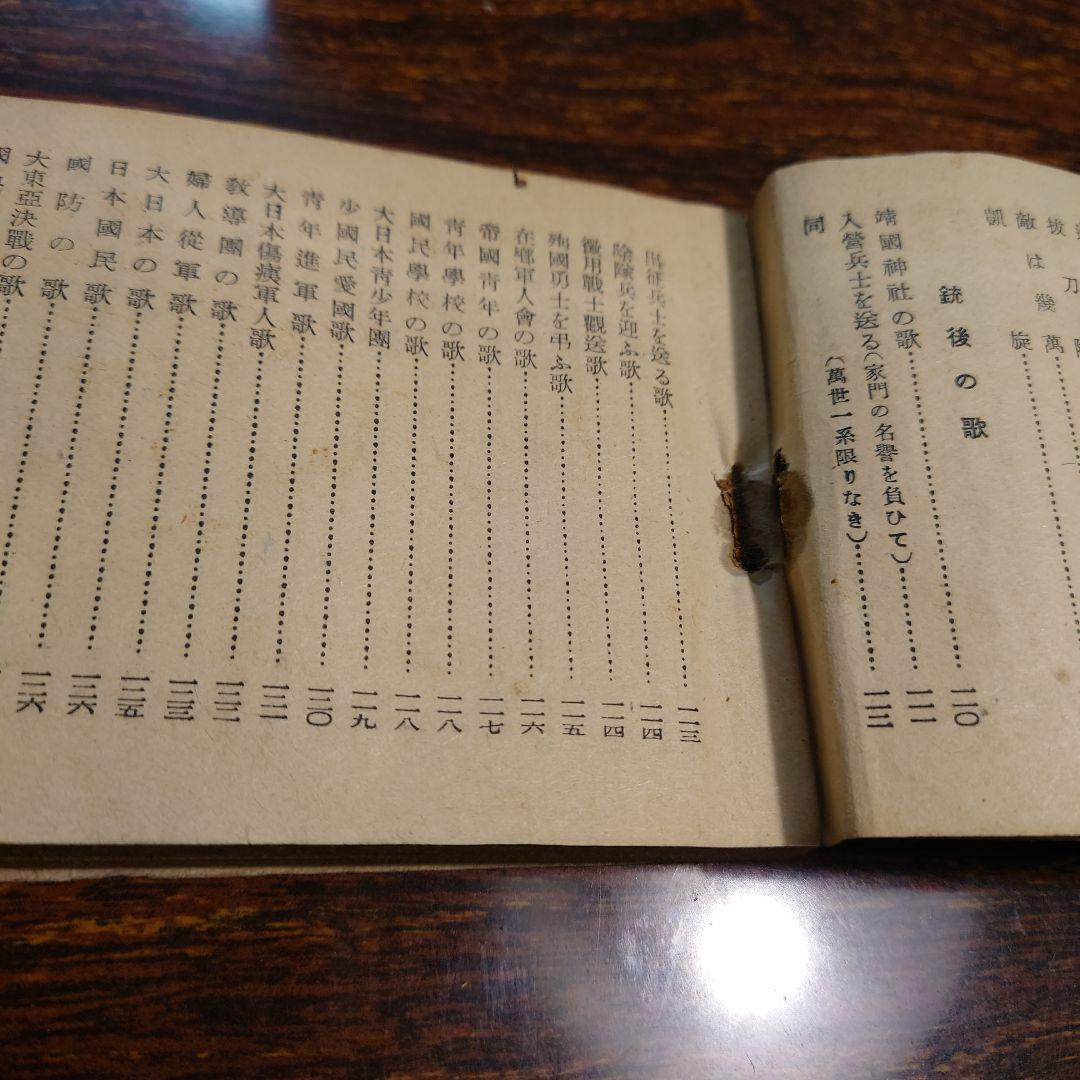 拔刀隊
敵は幾萬
凱旋
銃後の歌
靖國神社の歌……一一〇
入營兵士を送る(家門の名譽を負ひて)……一一一
同(萬世一系限りなき)……一一二
出征兵士を送る歌……一一三
除隊兵を迎ふ歌……一一四
徵用戰士觀送歌……一一四
殉國勇士を弔ふ歌……一一五
在鄕軍人會の歌……一一六
帝國靑年の歌……一一七
靑年學校の歌……一一八
國民學校の歌……一一八
大日本靑少年團……一一九
少國民愛國歌……一二〇
靑年進軍歌……一二一
大日本傷痍軍人歌……一二二
敎導團の歌……一二三
婦人從軍歌……一二五
大日本の歌……一二六
日本國民歌……一二六
國防の歌
大東亞決戰の歌